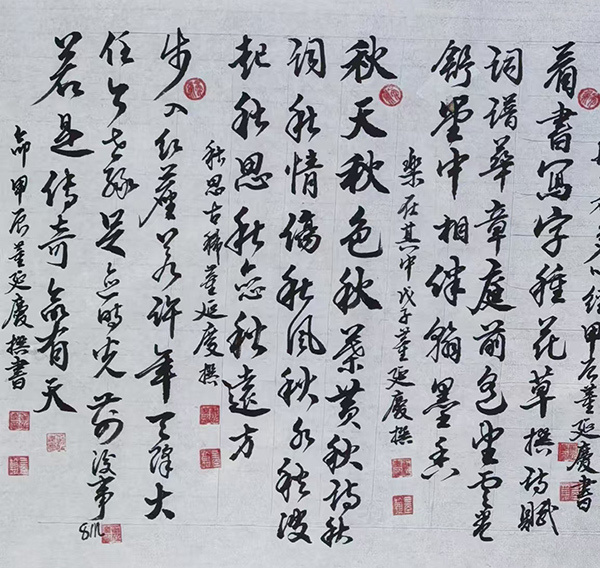 甲辰董延慶書
看書寫字種花草撰詩賦
詞譜華章庭前坐雲卷
舒堂中相伴翰墨香
樂在其中戊子董延慶撰
秋天秋色秋葉黃秋詩秋
詞秋情傷秋風秋水秋波
起秋思秋念秋遠方
秋思古稀董延慶撰
步入紅塵若許年天降大
任時光前後事
若是傳奇命有天
命甲辰董延慶撰書